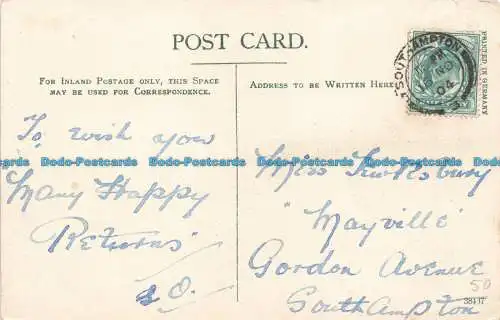 POST CARD.
FOR INLAND POSTAGE ONLY, THIS SPACE
MAY BE USED FOR CORRESPONDENCE.
ADDRESS TO BE WRITTEN HERE
PRINTED IN GERMANY
SOUTHAMPTON
NO
04
To wish you
Many Happy
Returns
Miss Tewkesbury
"Mayville"
Gordon Avenue
Southampton
50
38437
Dodo-Postcards Dodo-Postcards Dodo-Postcards Dodo-Postcards Dodo-Postcards